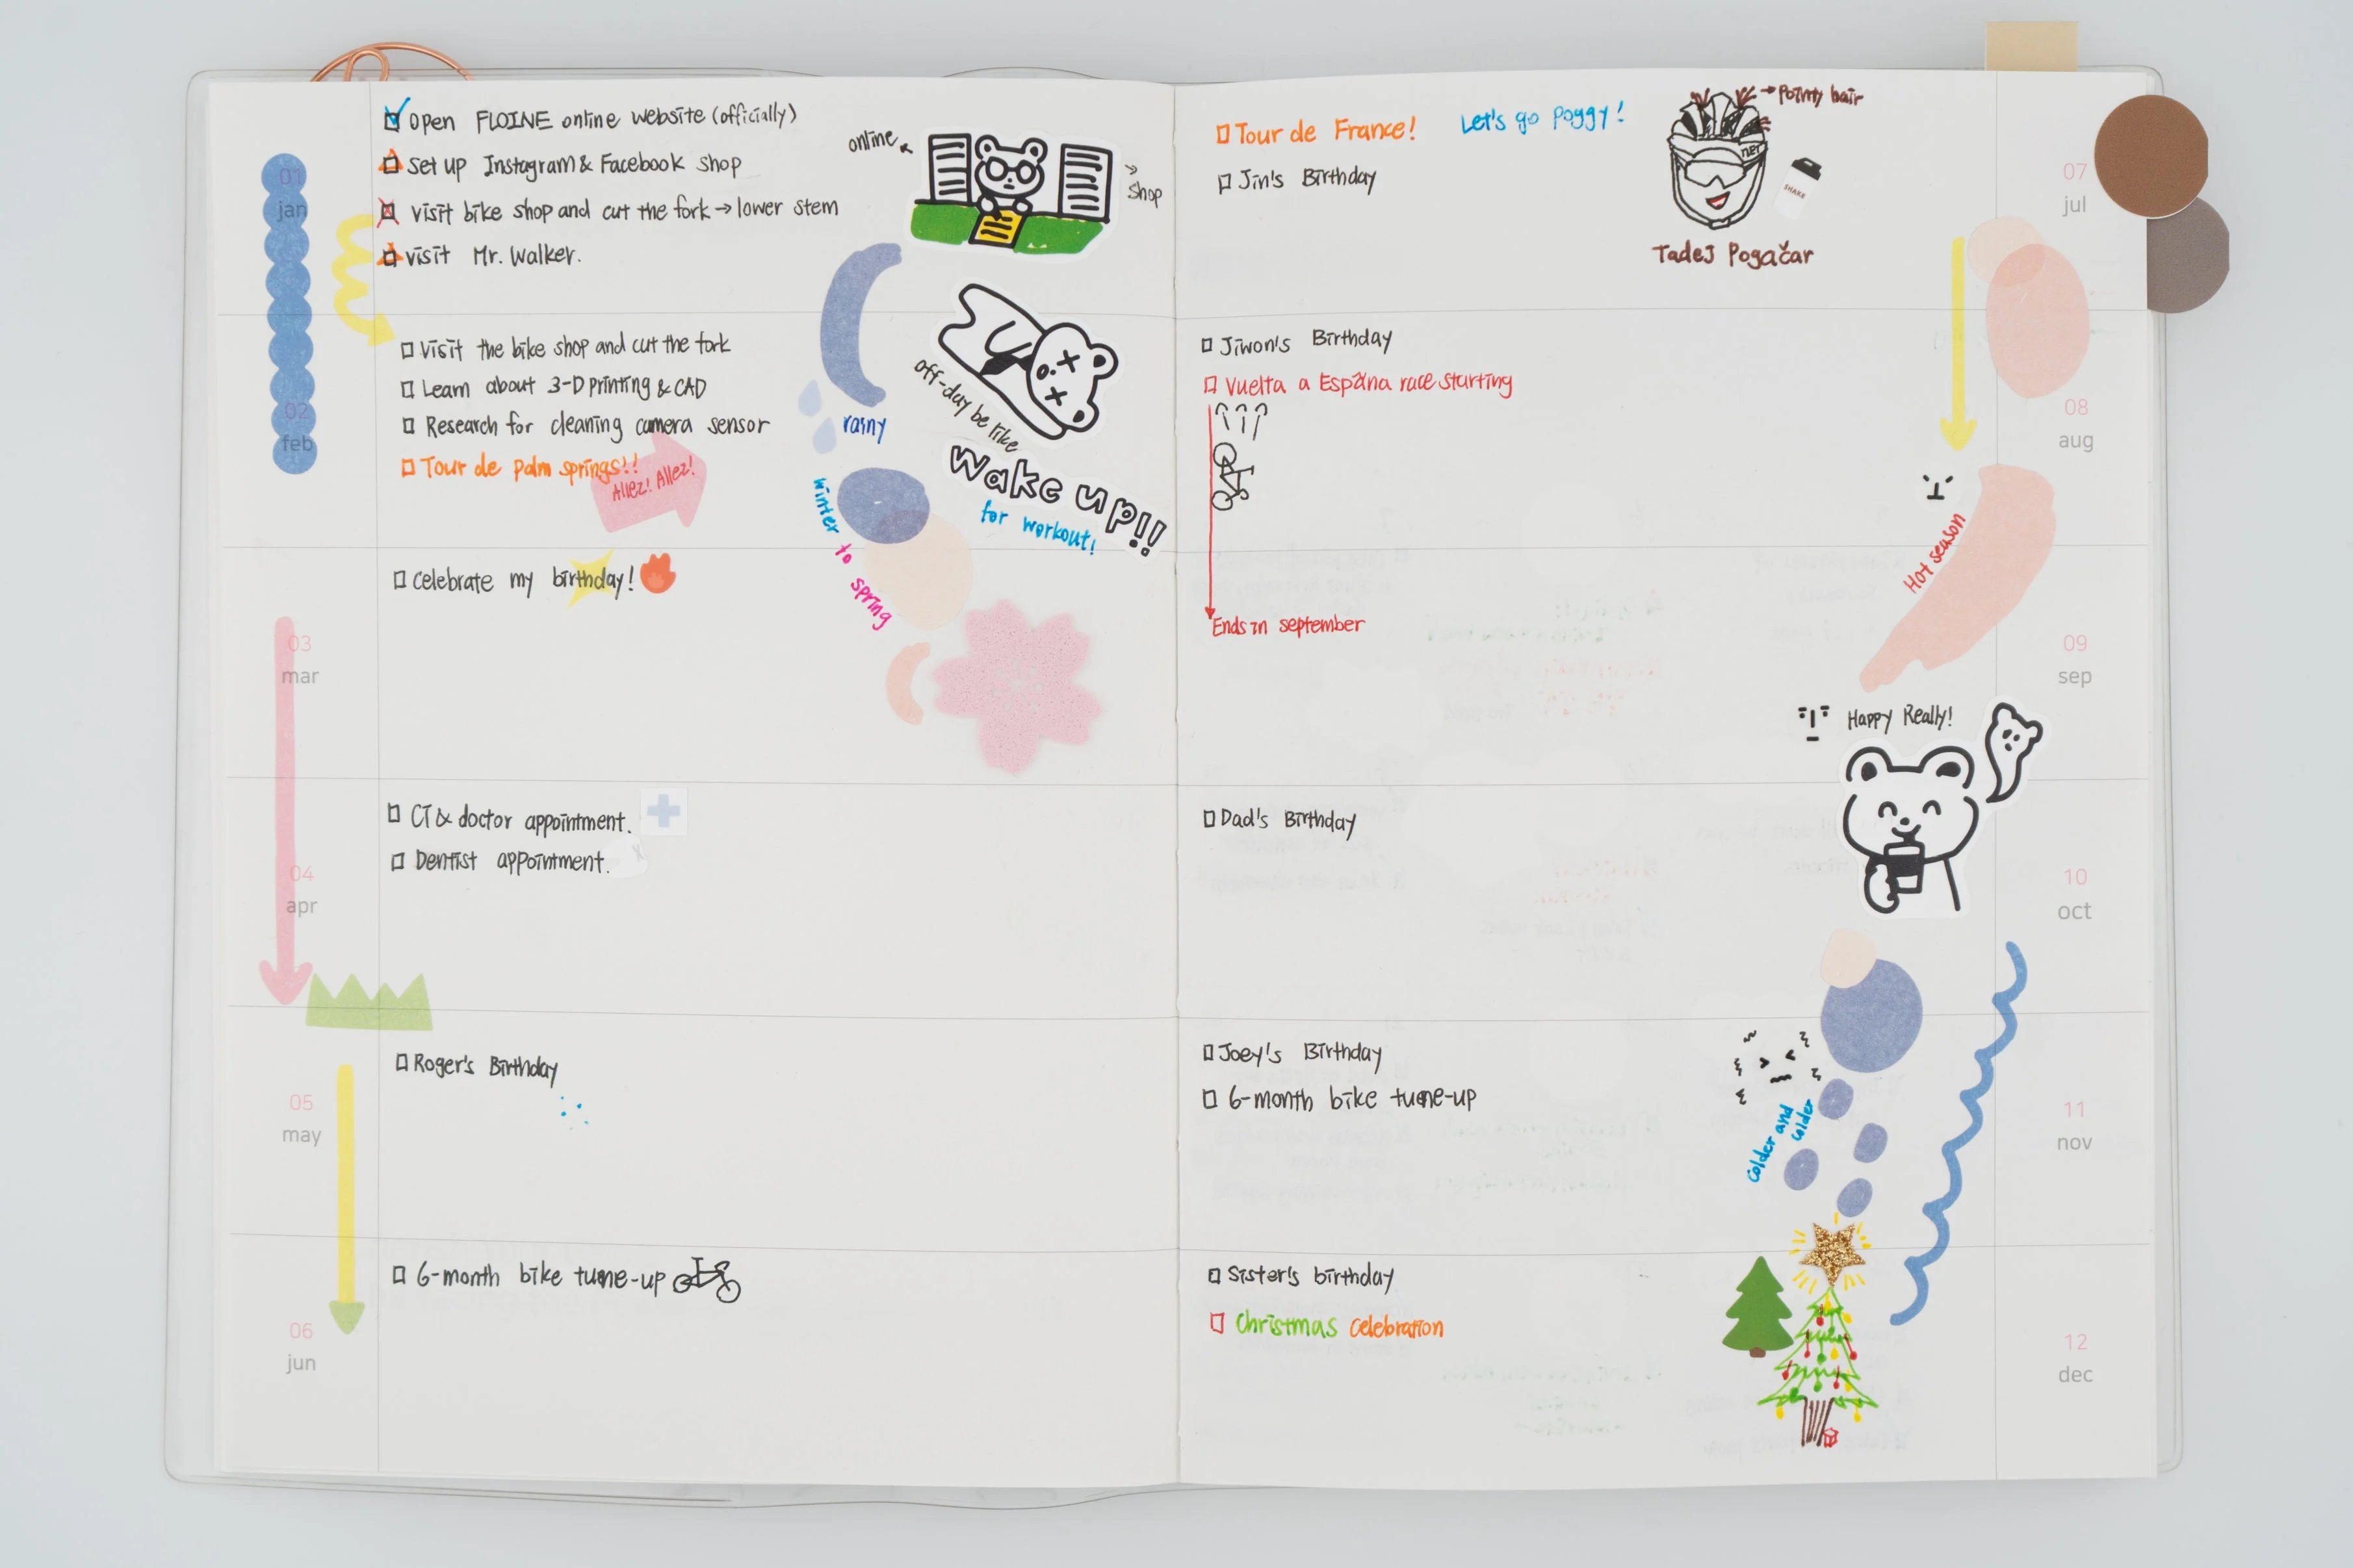 01
jan
Open FLOINE online website (officially)
Set up Instagram & Facebook shop
Visit bike shop and cut the fork → lower stem
Visit Mr. Walker.
online
Shop
02
feb
Visit the bike shop and cut the fork
Learn about 3-D printing & CAD
Research for cleaning camera sensor
Tour de palm springs!!
Allez! Allez!
rainy
off-day be like
Wake up!!
for workout!
winter to spring
03
mar
Celebrate my birthday!
04
apr
CT & doctor appointment.
Dentist appointment.
05
may
Roger's Birthday
06
jun
6-month bike tune-up
07
jul
Tour de France!
Let's go Poggy!
Jin's Birthday
→ Pointy hair
SHAKE
Tadej Pogačar
08
aug
Jiwon's Birthday
Vuelta a Espãna race starting
Hot season
09
sep
Ends in september
Happy Really!
10
oct
Dad's Birthday
11
nov
Joey's Birthday
6-month bike tune-up
Colder and
colder
12
dec
Sister's birthday
Christmas celebration